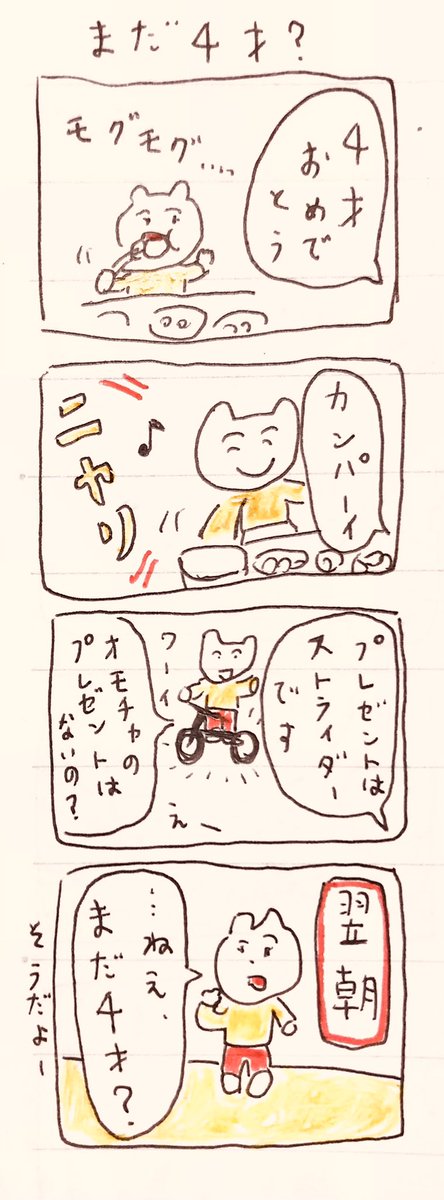 まだ4才?
4才
おめで
とう
モグモグ....
カンパーイ
ニヤリ
プレゼントは
ストライダー
です
ワーイ
オモチャの
プレゼントは
ないの?
えー
翌朝
…ねえ、
まだ4才?
そうだよー